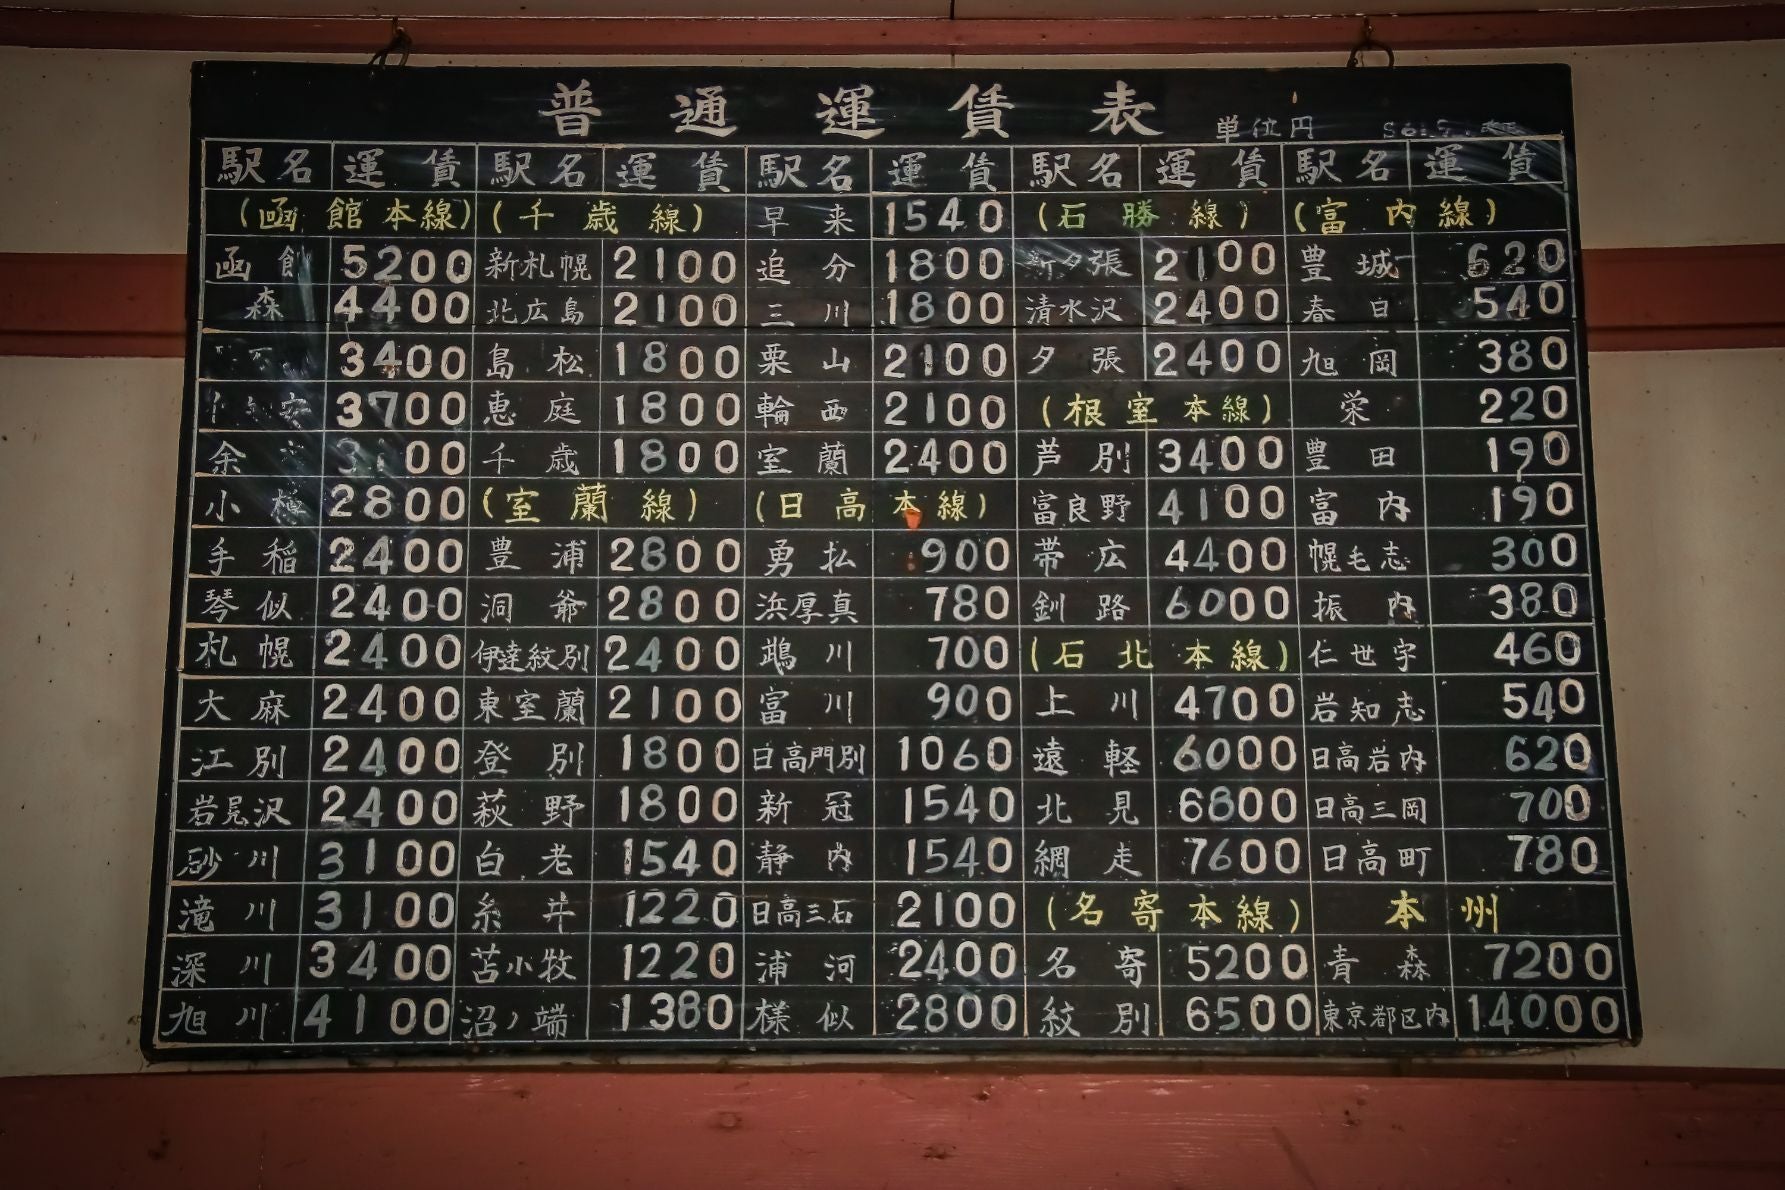 普通運賃表
単位円
駅名 運賃 駅名 運賃 駅名 運賃 駅名 運賃 駅名 運賃
(函館本線) (千歳線) 早来 1540 (石勝線) (富内線)
函館 5200 新札幌 2100 追分 1800 新夕張 2100 豊城 620
森 4400 北広島 2100 三川 1800 清水沢 2400 春日 540
3400 島松 1800 栗山 2100 夕張 2400 旭岡 380
安 3700 恵庭 1800 輪西 2100 (根室本線) 栄 220
余 3100 千歳 1800 室蘭 2400 芦別 3400 豊田 190
小樽 2800 (室蘭線) (日高本線) 富良野 4100 富内 190
手稲 2400 豊浦 2800 勇払 900 帯広 4400 幌毛志 300
琴似 2400 洞爺 2800 浜厚真 780 釧路 6000 振内 380
札幌 2400 伊達紋別 2400 鵡川 700 (石北本線) 仁世宇 460
大麻 2400 東室蘭 2100 富川 900 上川 4700 岩知志 540
江別 2400 登別 1800 日高門別 1060 遠軽 6000 日高岩内 620
岩見沢 2400 萩野 1800 新冠 1540 北見 6800 日高三岡 700
砂川 3100 白老 1540 静内 1540 網走 7600 日高町 780
滝川 3100 糸井 1220 日高三石 2100 (名寄本線) 本州
深川 3400 苫小牧 1220 浦河 2400 名寄 5200 青森 7200
旭川 4100 沼ノ端 1380 様似 2800 紋別 6500 東京都区内 14000